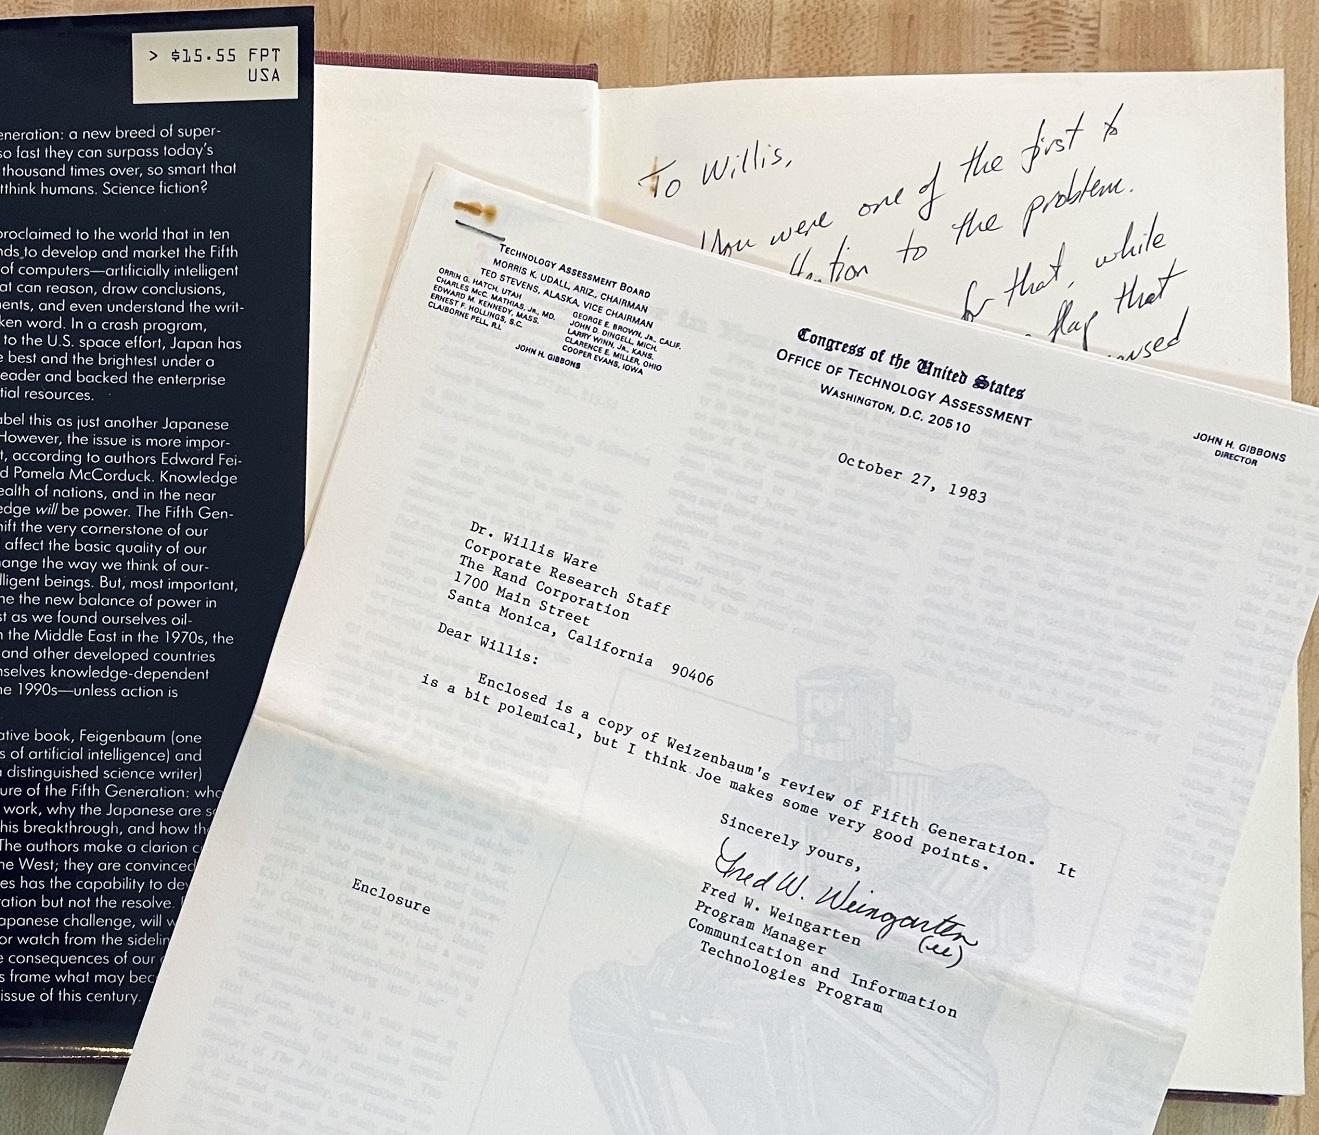 > $15.55 FPT
USA
eneration: a new breed of super-
so fast they can surpass today's
thousand times over, so smart that
tthink humans. Science fiction?
proclaimed to the world that in ten
nds to develop and market the Fifth
of computers—artificially intelligent
at can reason, draw conclusions,
ents, and even understand the writ-
ken word. In a crash program,
to the U.S. space effort, Japan has
e best and the brightest under a
eader and backed the enterprise
tial resources.
abel this as just another Japanese
However, the issue is more impor-
t, according to authors Edward Fei-
d Pamela McCorduck. Knowledge
ealth of nations, and in the near
edge will be power. The Fifth Gen-
hift the very cornerstone of our
affect the basic quality of our
ange the way we think of our-
lligent beings. But, most important,
ne the new balance of power in
st as we found ourselves oil-
n the Middle East in the 1970s, the
and other developed countries
nselves knowledge-dependent
he 1990s—unless action is
ative book, Feigenbaum (one
s of artificial intelligence) and
a distinguished science writer)
ure of the Fifth Generation: who
work, why the Japanese are s
his breakthrough, and how th
The authors make a clarion c
he West; they are convinced
es has the capability to de
ation but not the resolve.
apanese challenge, will w
or watch from the sidelin
e consequences of our
s frame what may bec
issue of this century.
To Willis,
You were one of the first to
tion to the problem.
for that, while
flap that
used
TECHNOLOGY ASSESSMENT BOARD
MORRIS K. UDALL, ARIZ., CHAIRMAN
TED STEVENS, ALASKA, VICE CHAIRMAN
ORRIN G. HATCH, UTAH
CHARLES McC. MATHIAS, JR., MD.
EDWARD M. KENNEDY, MASS.
ERNEST F. HOLLINGS, S.C.
CLAIBORNE PELL, R.I.
GEORGE E. BROWN, JR., CALIF.
JOHN D. DINGELL, MICH.
LARRY WINN, JR., KANS.
CLARENCE E. MILLER, OHIO
COOPER EVANS, IOWA
JOHN H. GIBBONS
Congress of the United States
OFFICE OF TECHNOLOGY ASSESSMENT
WASHINGTON, D.C. 20510
JOHN H. GIBBONS
DIRECTOR
October 27, 1983
Dr. Willis Ware
Corporate Research Staff
The Rand Corporation
1700 Main Street
Santa Monica, California 90406
Dear Willis:
Enclosed is a copy of Weizenbaum's review of Fifth Generation. It
is a bit polemical, but I think Joe makes some very good points.
Sincerely yours,
Fred W. Weingarten
(ee)
Fred W. Weingarten
Program Manager
Communication and Information
Technologies Program
Enclosure